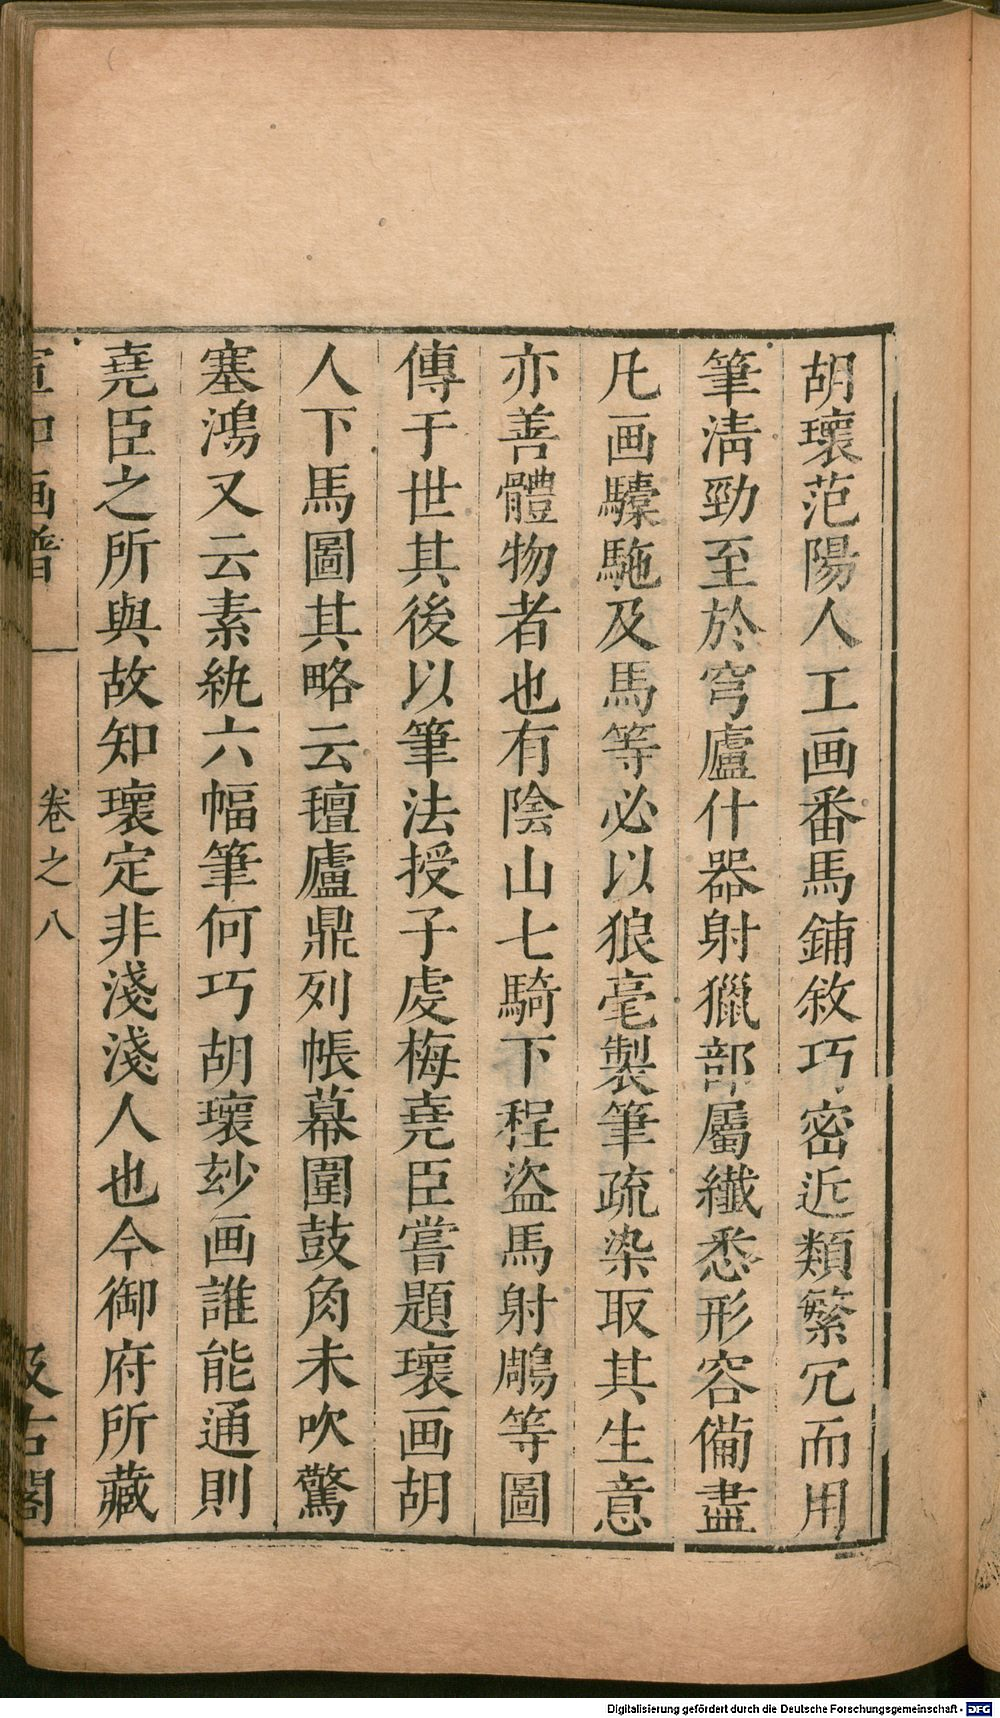 胡瓌范陽人工画番馬鋪敘巧密近類繁冗而用
筆淸勁至於穹廬什器射獵部屬纖悉形容備盡
凡画驝駞及馬等必以狼毫製筆疏染取其生意
亦善體物者也有陰山七騎下程盜馬射鵰等圖
傳于世其後以筆法授子虔梅堯臣嘗題瓌画胡
人下馬圖其略云氊廬鼎列帳幕圍鼓角未吹驚
塞鴻又云素紈六幅筆何巧胡瓌玅画誰能通則
堯臣之所與故知瓌定非淺淺人也今御府所藏
宣和画譜
卷之八
汲古閣
Digitalisierung gefördert durch die Deutsche Forschungsgemeinschaft - DFG